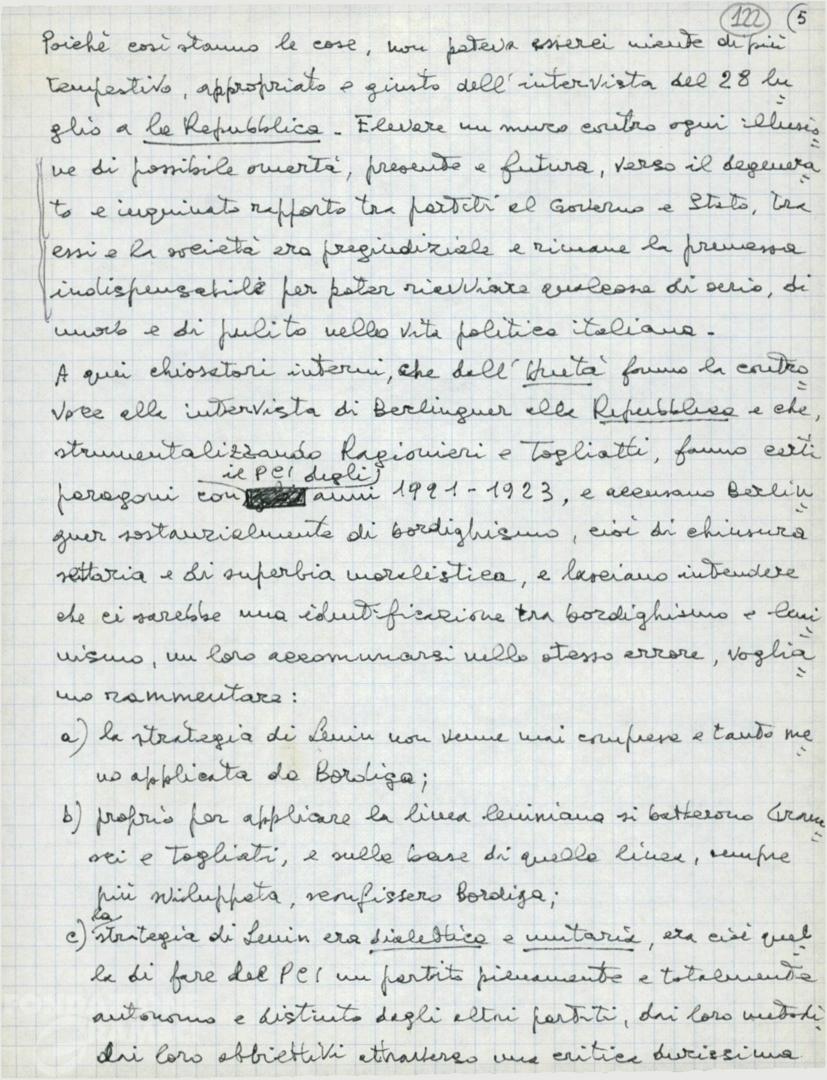 122 5
Poiché così stanno le cose, non poteva esserci niente di più
tempestivo, appropriato e giusto dell'intervista del 28 lu=
glio a la Repubblica. Elevare un muro contro ogni illusio=
ne di possibile omertà, presente e futura, verso il degenera=
to e inquinato rapporto tra partiti al Governo e Stato, tra
essi e la società era pregiudiziale e rimane la premessa
indispensabile per poter riavviare qualcosa di serio, di
nuovo e di pulito nella vita politica italiana.
A quei chiosatori interni, che dall'Unità fanno la contro=
voce alla intervista di Berlinguer alla Repubblica e che,
strumentalizzando Ragionieri e Togliatti, fanno certi
il PCI degli
paragoni con anni 1921-1923, e accusano Berlin=
guer sostanzialmente di bordighismo, cioè di chiusura
settaria e di superbia moralistica, e lasciano intendere
che ci sarebbe una identificazione tra bordighismo e leni=
nismo, un loro accomunarsi nello stesso errore, voglia=
mo rammentare:
a) la strategia di Lenin non venne mai compresa e tanto me=
no applicata da Bordiga;
b) proprio per applicare la linea leniniana si batterono Gram=
sci e Togliatti, e sulla base di quella linea, sempre
più sviluppata, sconfissero Bordiga;
la
c) strategia di Lenin era dialettica e unitaria, era cioè quel=
la di fare del PCI un partito pienamente e totalmente
autonomo e distinto dagli altri partiti, dai loro metodi=
dai loro obbiettivi attraverso una critica durissima